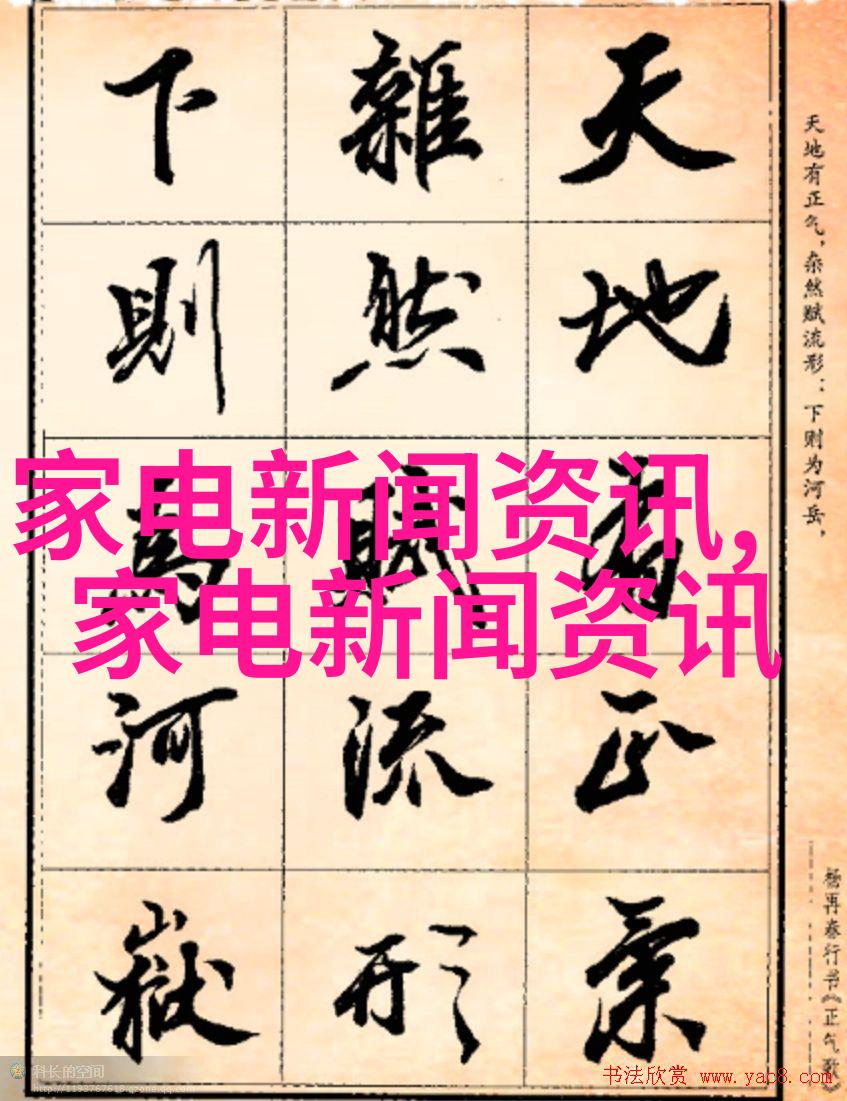 天地有正氣
雜然賦流形
下則為河嶽
天地有正气，杂然赋流形：下则为河岳，
杨再春行书《正气歌》
家电新闻资讯,
家电新闻资讯
科长的空间
http://1193767618.qzone.qq.com
书法欣赏 www.yac8.com